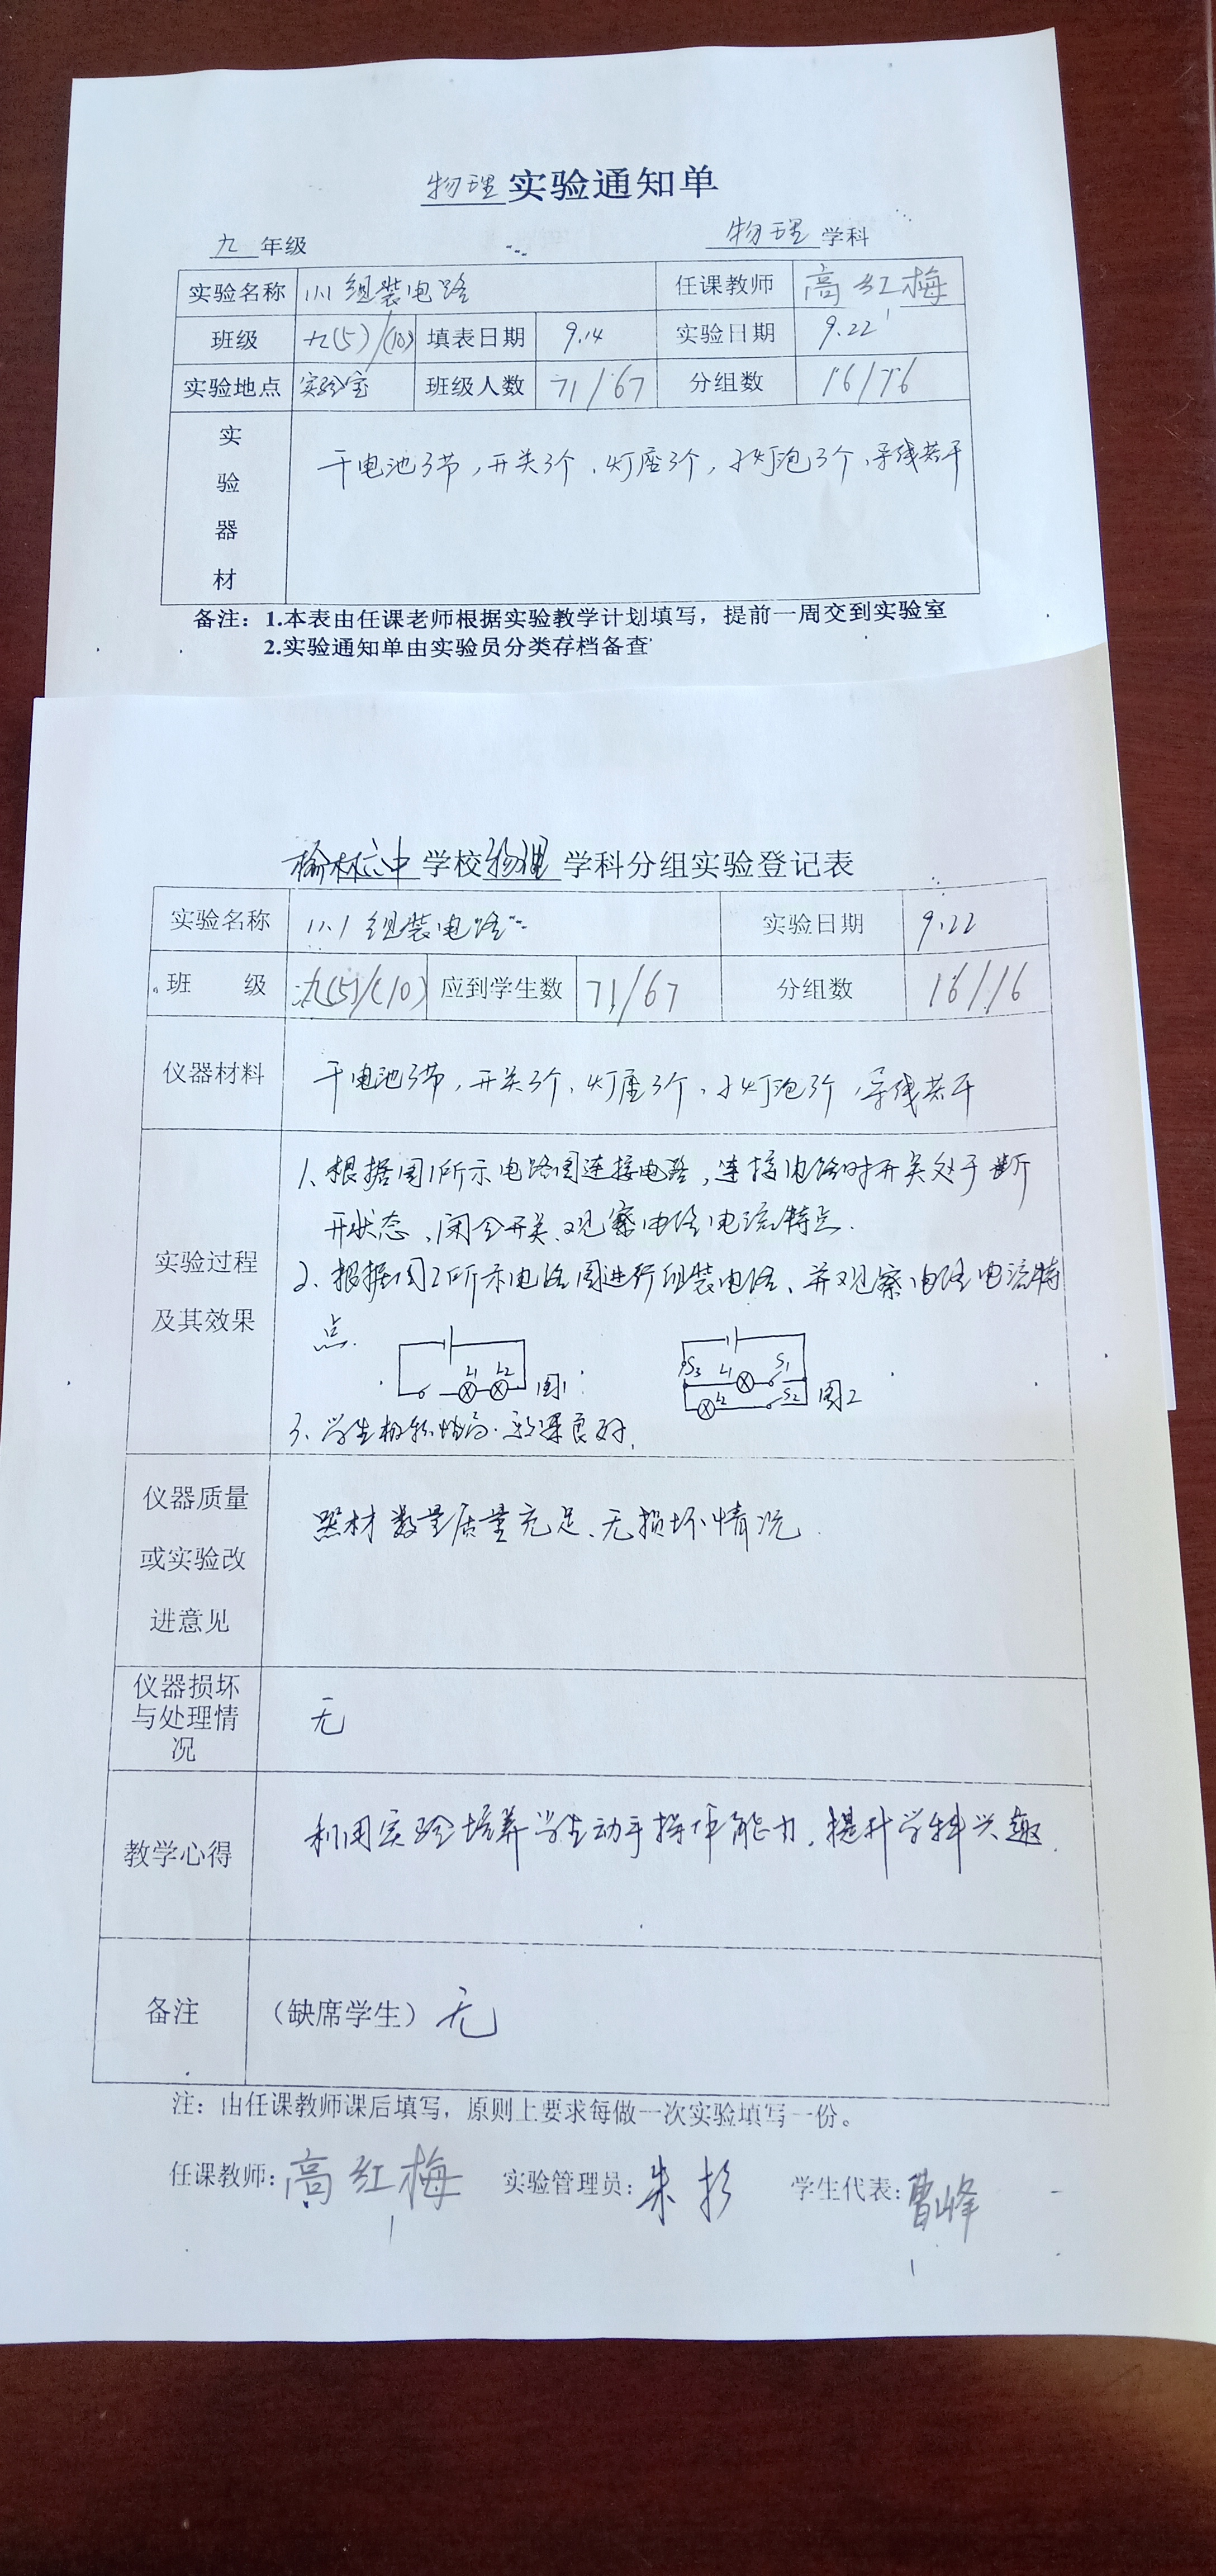 物理 实验通知单
九 年级 物理 学科
实验名称 11.1 组装电路 任课教师 高红梅
班级 九(5)/(10) 填表日期 9.14 实验日期 9.22
实验地点 实验室 班级人数 71/67 分组数 16/16
实验器材 干电池3节，开关3个、灯座3个，小灯泡3个、导线若干
备注：1.本表由任课老师根据实验教学计划填写，提前一周交到实验室
2.实验通知单由实验员分类存档备查
榆林六中 学校 物理 学科分组实验登记表
实验名称 11.1 组装电路 实验日期 9.22
班 级 九(5)/(10) 应到学生数 71/67 分组数 16/16
仪器材料 干电池3节，开关3个、灯座3个、小灯泡3个、导线若干
实验过程及其效果
1、根据图1所示电路图连接电路，连接电路时开关处于断
开状态、闭合开关、观察电路电流特点.
2、根据图2所示电路图进行组装电路、并观察电路电流特
点.
L1 L2 图1
S3 L1 S1
L2 S2 图2
3、学生积极性高.效果良好.
仪器质量或实验改进意见 器材数量质量充足、无损坏情况.
仪器损坏与处理情况 无
教学心得 利用实验培养学生动手操作能力，提升学科兴趣.
备注 （缺席学生）无
注：由任课教师课后填写，原则上要求每做一次实验填写一份。
任课教师：高红梅 实验管理员：朱杉 学生代表：曹峰